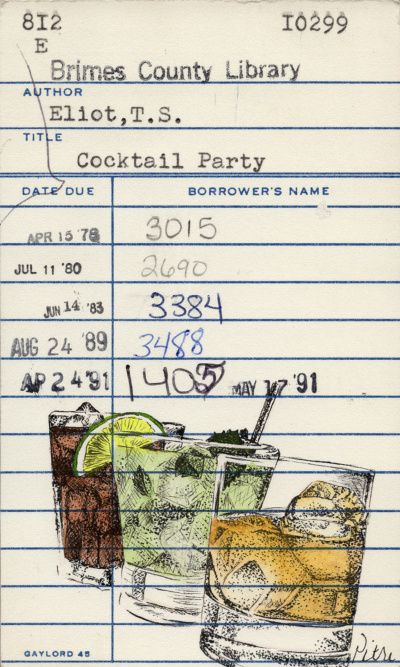 812 10299
E
Brimes County Library
AUTHOR
Eliot,T.S.
TITLE
Cocktail Party
DATE DUE BORROWER'S NAME
APR 15 '76 3015
JUL 11 '80 2690
JUN 14 '83 3384
AUG 24 '89 3488
AP 24 '91 1405 MAY 17 '91
GAYLORD 45
Pitre